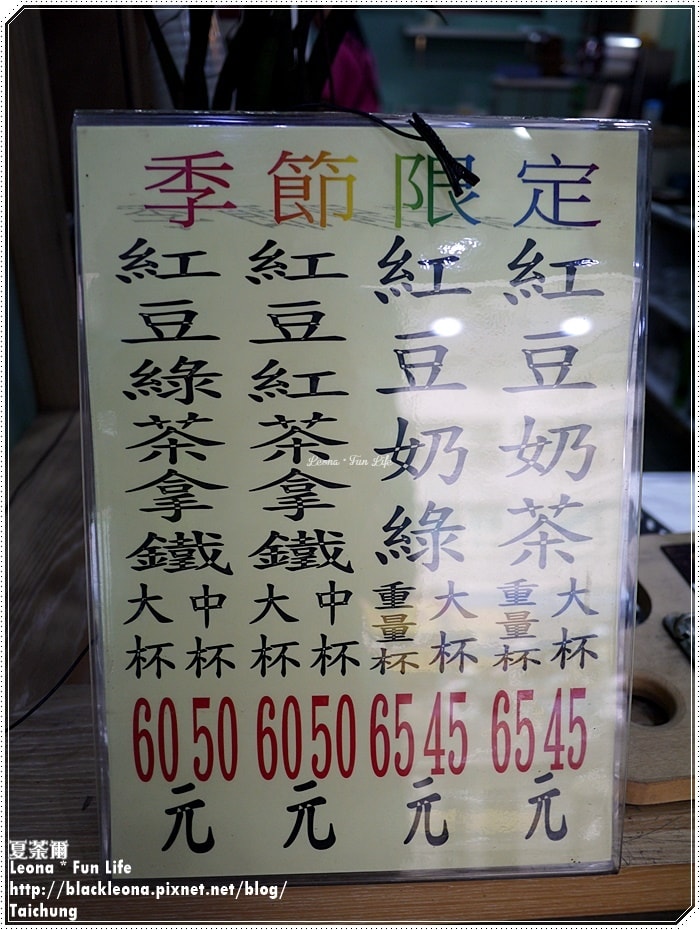 季節限定
紅豆奶茶
大杯
45
重量杯
65
元
紅豆奶綠
大杯
45
重量杯
65
元
紅豆紅茶拿鐵
中杯
50
大杯
60
元
紅豆綠茶拿鐵
中杯
50
大杯
60
元
Leona * Fun Life
夏茶爾
Leona * Fun Life
http://blackleona.pixnet.net/blog/
Taichung